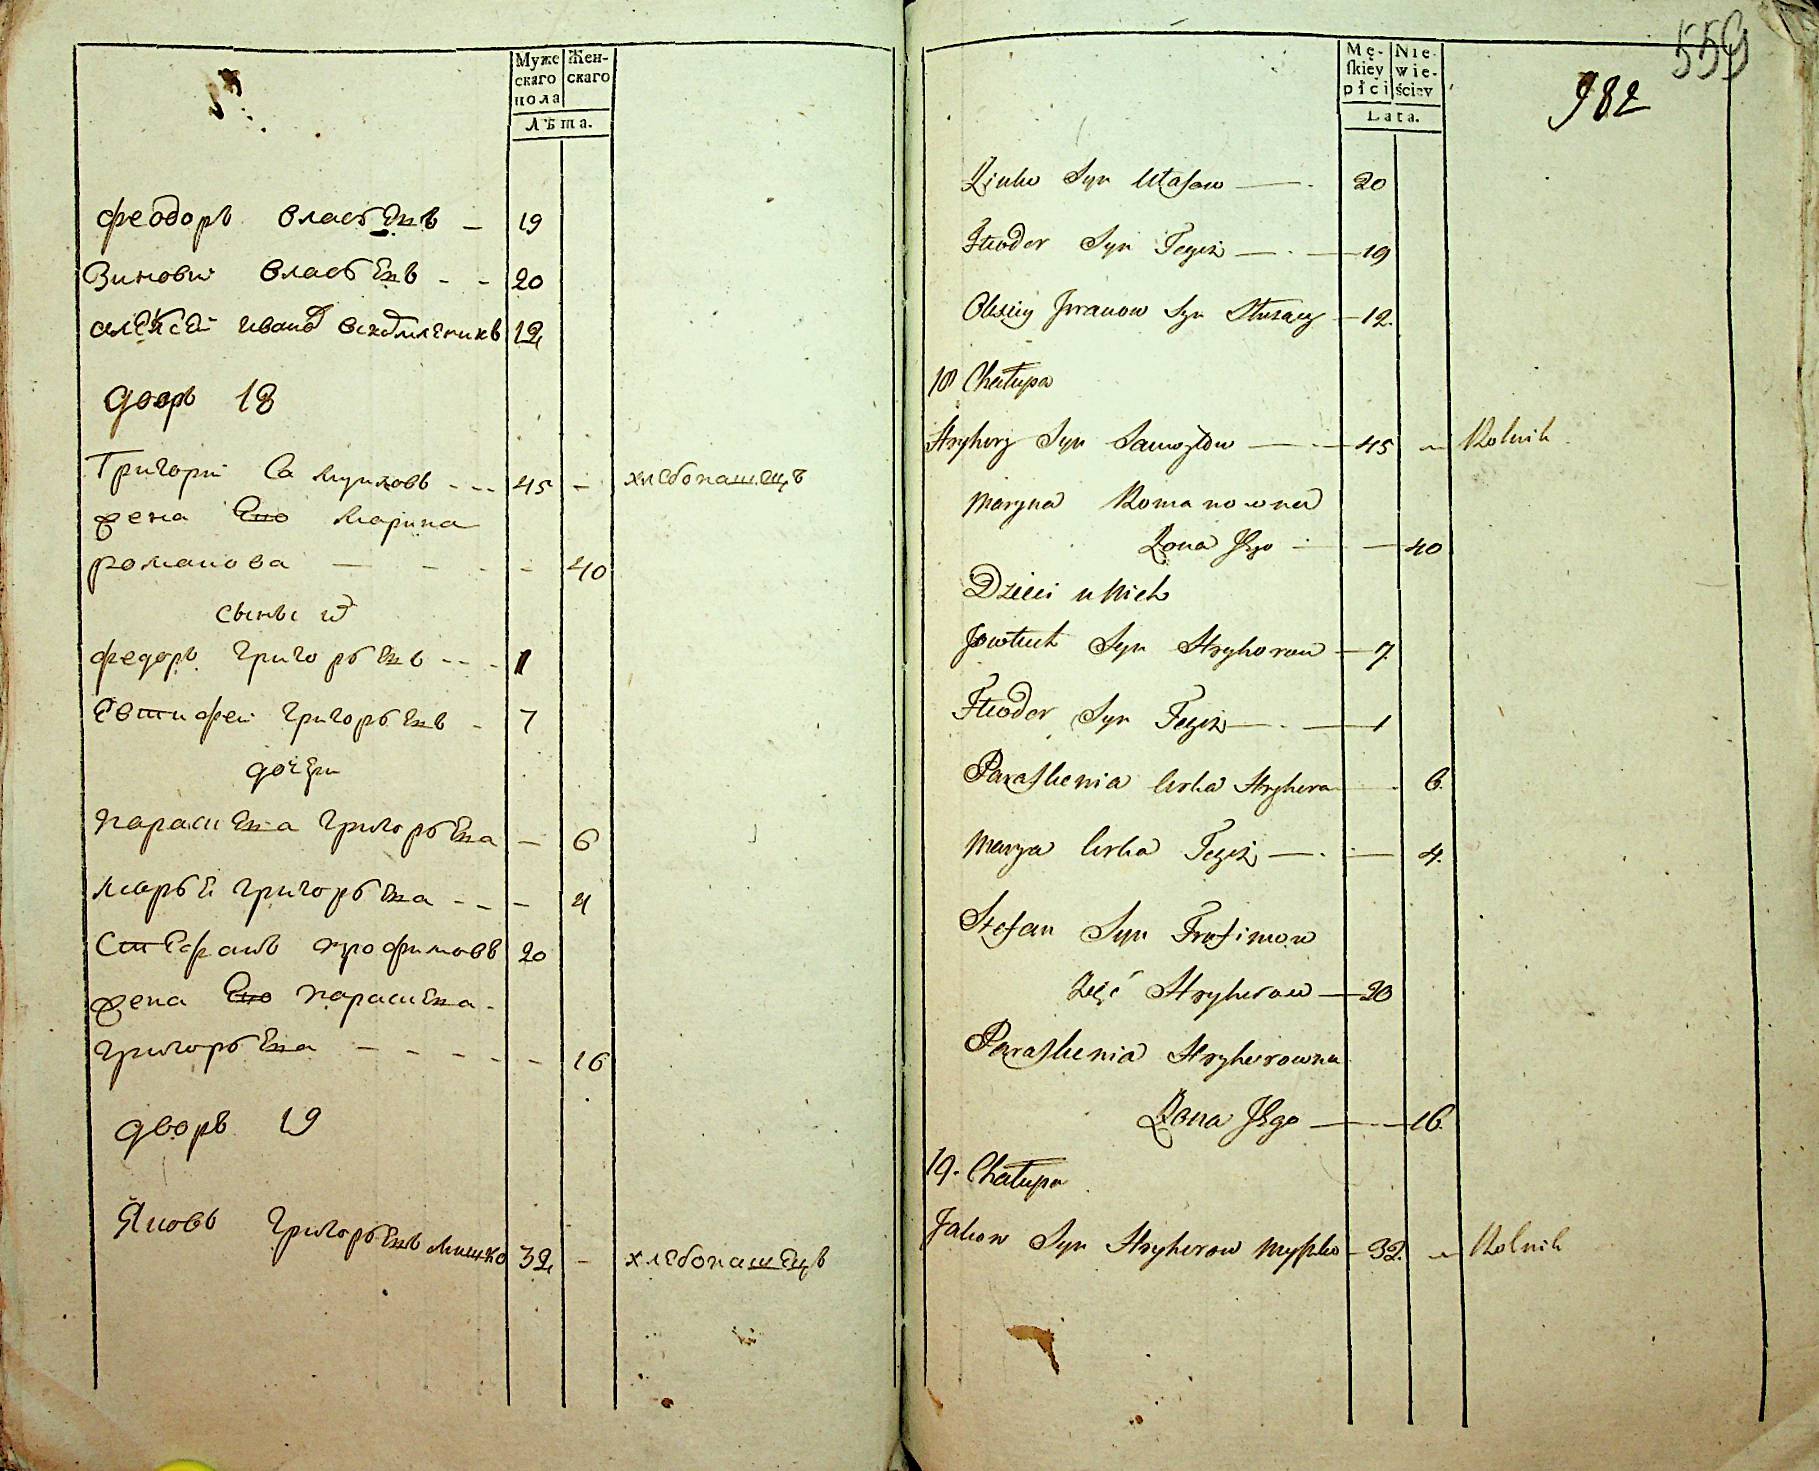 Муже
скаго
пола
Жен-
скаго
Лѣта.
Феодоръ Власьевъ — 19
Зиновий Власьевъ - - 20
Алексей Иванов 12
дворъ 18
Григорий Самуиловъ - - - 45 - хлебопашецъ
жена Ево Марина
романова — - - - - 40
сыны их
федоръ григорьевъ - - - 1
Евтифей григорьевъ - 7
дочери
парасковья григорьева — 6
Марья григорьева - - - 4
Стефанъ трофимовъ 20
жена Ево парасковья
григорьева - - - - - 16
дворъ 19
Яковъ григорьевъ Мишко 32 - хлебопашецъ
Mę-
skiey
płci
Nie-
wie-
ściey
Lata.
559
982
Syn Ułasow — 20
Fteodor Syn Tegoż — 19
Olexiey Iwanow Syn — 12.
18 Chałupa
Hryhory Syn Samoyłow — 45 Rolnik
Maryna Romanowna
Żona Jego — 40
Dzieci u Nich
Jowtuch Syn Hryhorow — 7.
Fteodor Syn Tegoż — 1
Paraskewia Corka Hryhora 6.
Marya Corka Tegoż — 4.
Stefan Syn Trofimow
Zięć Hryhorow — 20
Paraskewia Hryhorowna
Żona Jego — 16.
19. Chałupa
Jakow Syn Hryhorow Myszko — 32. Rolnik